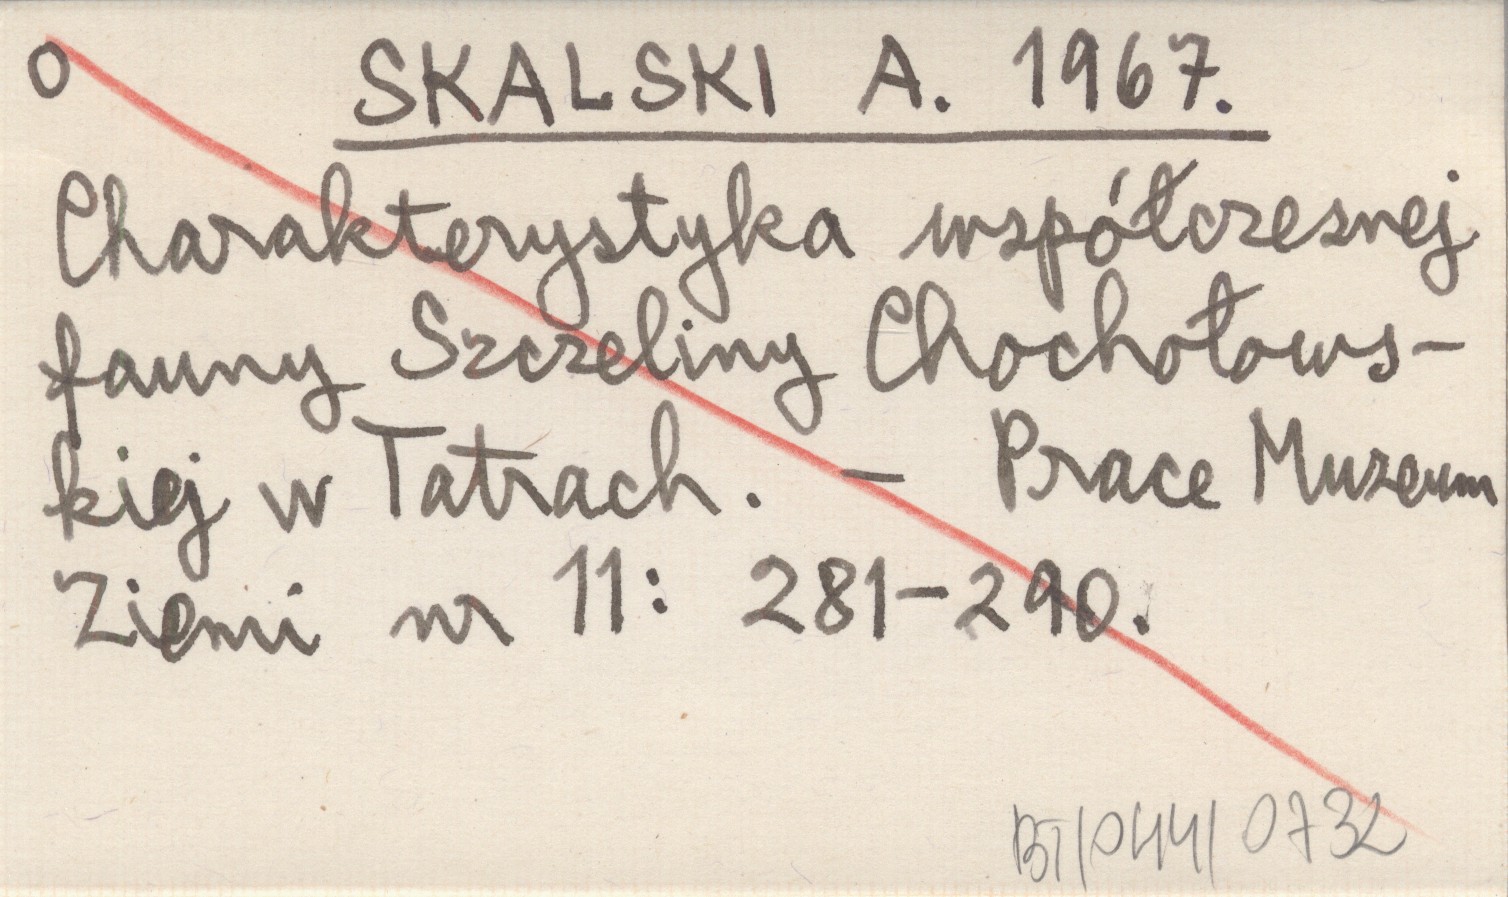 O SKALSKI A. 1967.
Charakterystyka współczesnej
fauny Szczeliny Chochołows-
kiej w Tatrach. – Prace Muzeum
Ziemi nr 11: 281-290.
BT/044/0732